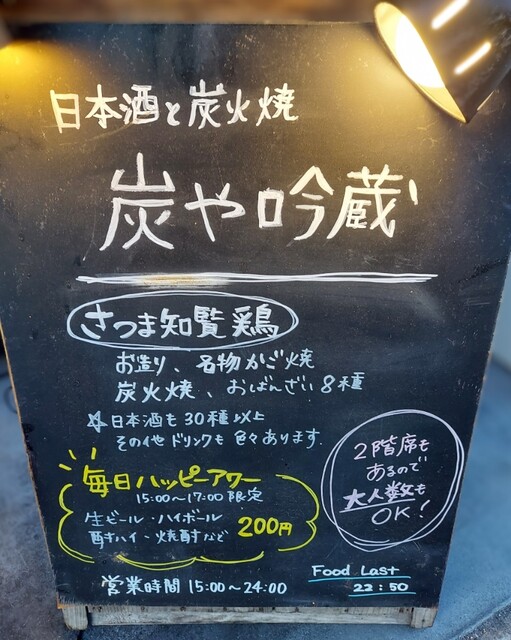 日本酒と炭火焼
炭や吟蔵
さつま知覧鶏
お造り、名物かご焼
炭火焼、おばんざい8種
☆日本酒も30種以上
その他ドリンクも色々あります。
毎日ハッピーアワー
15:00〜17:00限定
生ビール・ハイボール
酎ハイ・焼酎など
200円
2階席も
あるので
大人数も
OK!
営業時間 15:00〜24:00
Food Last
22:50